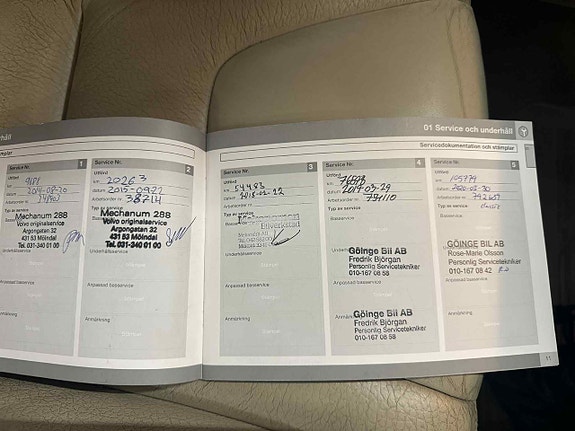 håll
01 Service och underhåll
Servicedokumentation och stämplar
Service Nr. 1
Utförd
km 9181
datum 2014-08-20
Arbetsorder nr
Typ av service
Mechanum 288
Volvo originalservice
Argongatan 32
431 53 Mölndal
Tel. 031-340 01 00
Underhållsservice
Anpassad basservice
Anmärkning
Service Nr. 2
Utförd
km 20263
datum 2015-09-22
Arbetsorder nr 38714
Typ av service
Mechanum 288
Volvo originalservice
Argongatan 32
431 53 Mölndal
Tel. 031-340 01 00
Underhållsservice
Anpassad basservice
Anmärkning
Service Nr. 3
Utförd
km 54483
datum 2018-02-22
Arbetsorder nr
Typ av service
Basservice
Bilverkstad
Underhållsservice
Anpassad basservice
Stämpel
Anmärkning
Stämpel
Service Nr. 4
Utförd
km
datum 2019-03-29
Arbetsorder nr 791110
Typ av service
Basservice
Göinge Bil AB
Fredrik Björgan
Personlig Servicetekniker
010-167 08 58
Anpassad basservice
Stämpel
Göinge Bil AB
Fredrik Björgan
Personlig Servicetekniker
010-167 08 58
Service Nr. 5
Utförd
km 105779
datum
Arbetsorder nr
Typ av service
Basservice
GÖINGE BIL AB
Rose-Marie Olsson
Personlig Servicetekniker
010-167 08 42
Anpassad basservice
Stämpel
Anmärkning
Stämpel
11